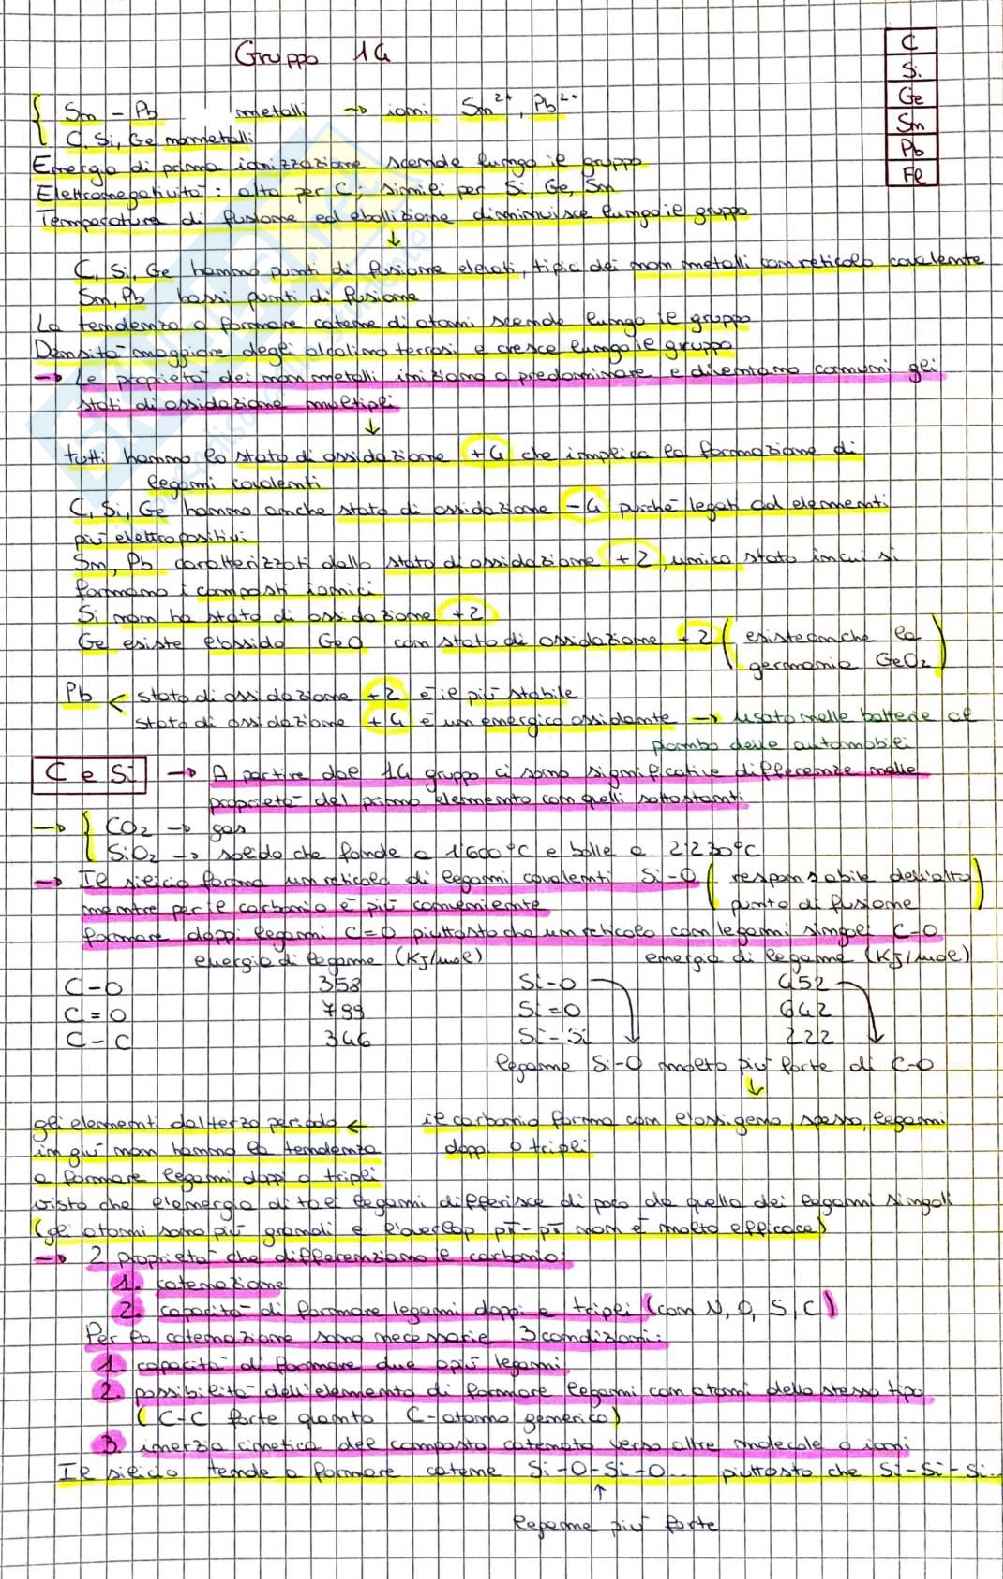 Gruppo 14
C
Si
Ge
Sn
Pb
Fl
Sn - Pb metalli → ioni Sn²⁺, Pb²⁺
C, Si, Ge nonmetalli
Energia di prima ionizzazione scende lungo il gruppo
Elettronegatività: alta per C; simili per Si, Ge, Sn
Temperatura di fusione ed ebollizione diminuisce lungo il gruppo
↓
C, Si, Ge hanno punti di fusione elevati, tipic dei non metalli con reticolo covalente
Sn, Pb bassi punti di fusione
La tendenza a formare catene di atomi scende lungo il gruppo
Densità maggiore degli alcalino terrosi e cresce lungo il gruppo
→ Le proprietà dei non metalli iniziano a predominare e diventano comuni gli
stati di ossidazione multipli
↓
tutti hanno lo stato di ossidazione +4 che implica la formazione di
legami covalenti
C, Si, Ge hanno anche stato di ossidazione -4 purché legati ad elementi
più elettropositivi
Sn, Pb caratterizzati dallo stato di ossidazione +2, unico stato in cui si
formano i composti ionici
Si non ha stato di ossidazione +2
Ge esiste l'ossido GeO con stato di ossidazione +2 (esiste anche la
germania GeO₂)
Pb < stato di ossidazione +2 è il più stabile
stato di ossidazione +4 è un energico ossidante → usato nelle batterie al
piombo delle automobili
C e Si → A partire dal 14 gruppo ci sono significative differenze nelle
proprietà del primo elemento con quelli sottostanti
→ { CO₂ → gas
SiO₂ → solido che fonde a 1600°C e bolle a 2230°C
→ Il silicio forma un reticolo di legami covalenti Si-O (responsabile dell'alto
punto di fusione)
mentre per il carbonio è più conveniente
formare doppi legami C=O piuttosto che un reticolo con legami singoli C-O
energia di legame (KJ/mole) energia di legame (KJ/mole)
C-O 358 Si-O 452
C=O 799 Si=O 642
C-C 346 Si-Si 222
legame Si-O molto più forte di C-O
↓
gli elementi dal terzo periodo ← il carbonio forma con l'ossigeno, spesso, legami
in giù non hanno la tendenza doppi o tripli
a formare legami doppi o tripli
visto che l'energia di tal legami differisce di poco da quella dei legami singoli
(gli atomi sono più grandi e l'overlap pπ-pπ non è molto efficace)
→ 2 proprietà che differenziano il carbonio:
1. catenazione
2. capacità di formare legami doppi e tripli (con N, O, S, C)
Per la catenazione sono necessarie 3 condizioni:
1. capacità di formare due o più legami
2. possibilità dell'elemento di formare legami con atomi dello stesso tipo
(C-C forte quanto C-atomo generico)
3. inerzia cinetica del composto catenato verso altre molecole o ioni
Il silicio tende a formare catene Si-O-Si-O... piuttosto che Si-Si-Si...
↑
legame più forte